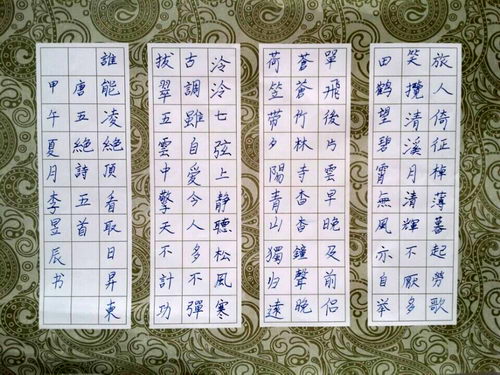 旅人倚征棹薄暮起勞歌
笑攬清溪月清輝不厭多
田鹤望碧霄無風亦自举
單飛後片雲早晚及前侶
蒼蒼竹林寺杳杳鐘聲晚
荷笠带夕陽青山獨归遠
泠泠七弦上静聽松風寒
古調雖自愛今人多不彈
拔翠五雲中擎天不計功
誰能凌絕頂看取日昇東
唐五絕詩五首
甲午夏月李昱辰书